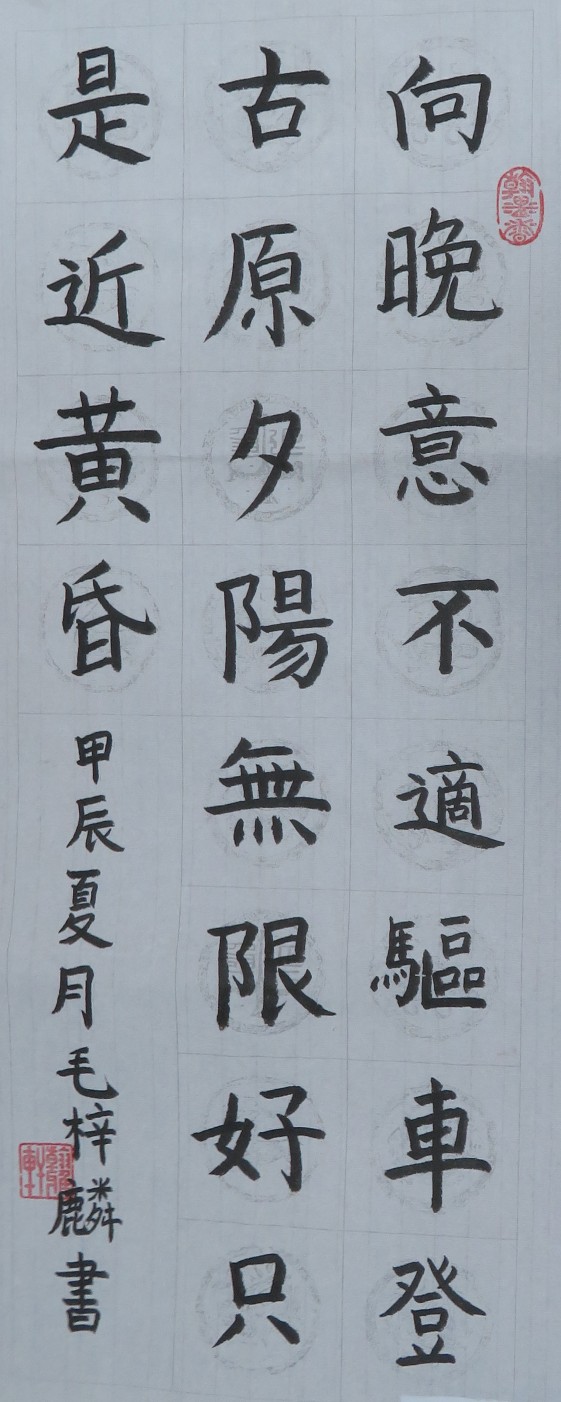 向晚意不適驅車登
古原夕陽無限好只
是近黃昏
甲辰夏月毛梓麟書